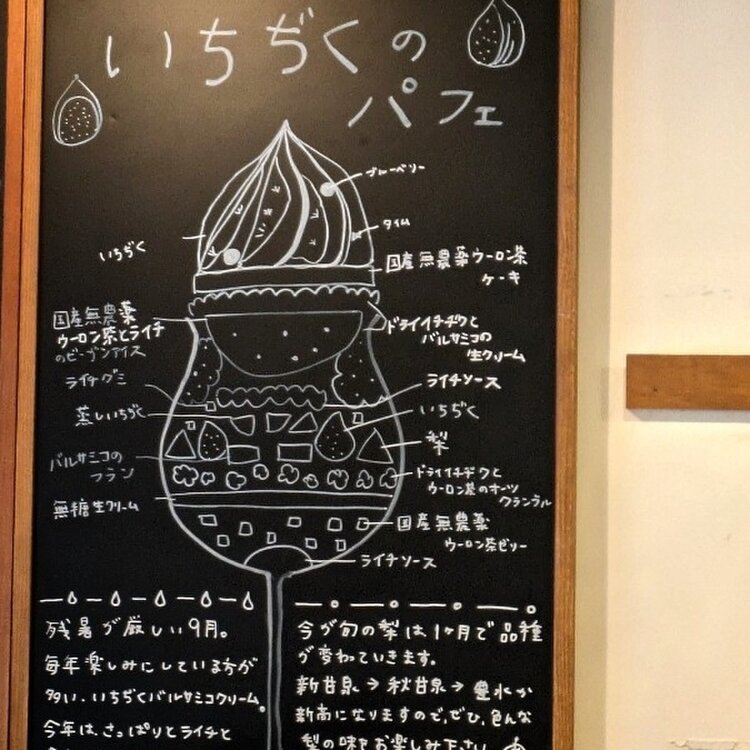 いちぢくの
パフェ
ブルーベリー
タイム
いちぢく
国産無農薬ウーロン茶
ケーキ
国産無農薬
ウーロン茶とライチ
のビーガンアイス
ドライイチヂクと
バルサミコの
生クリーム
ライチグミ
ライチソース
蒸しいちぢく
いちぢく
梨
バルサミコの
フラン
ドライイチヂクと
ウーロン茶のオーツ
クランブル
無糖生クリーム
国産無農薬
ウーロン茶ゼリー
ライチソース
残暑が厳しい9月。
毎年楽しみにしている方が
多い、いちぢくバルサミコクリーム。
今年は、さっぱりとライチと
今が旬の梨は1ヶ月で品種
が変わっていきます。
新甘泉→秋甘泉→豊水か
新高になりますので、ぜひ、色んな
梨の味をお楽しみ下さい